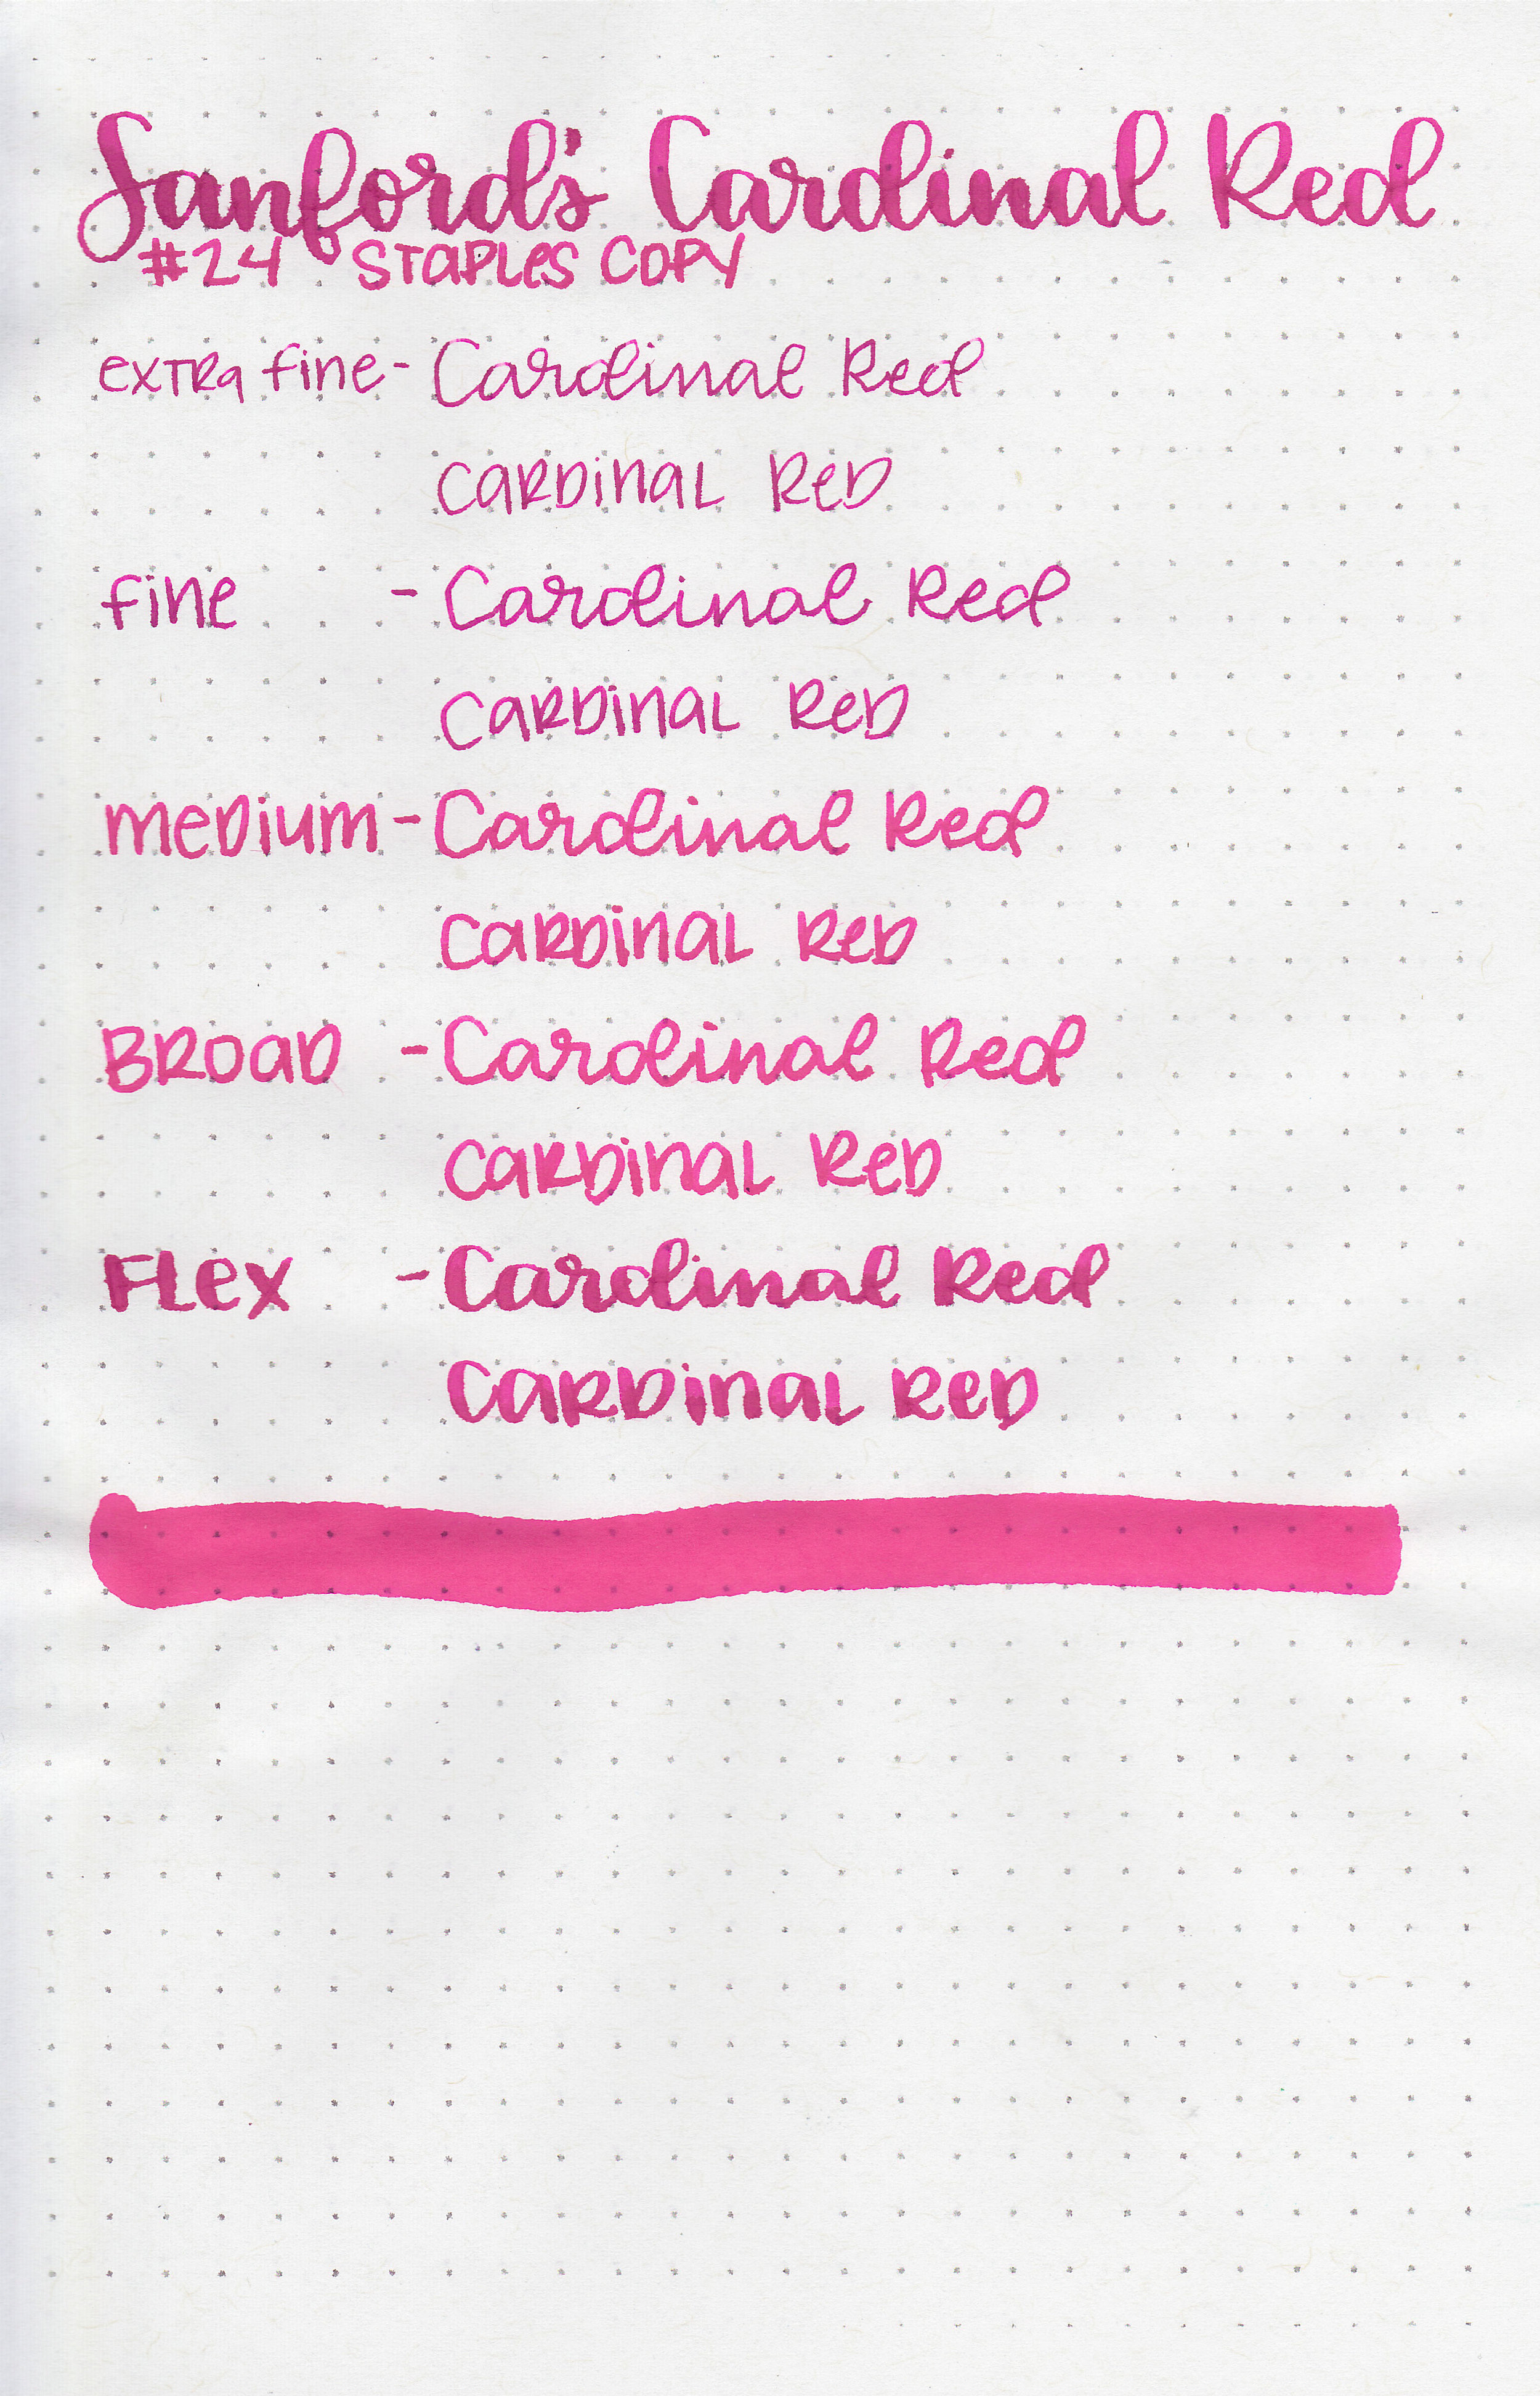 Sanford's Cardinal Red
#24 STAPLes COPY
exTRa fine - Cardinal Red
CaRDinaL ReD
fine - Cardinal Red
CaRDinaL ReD
meDium - Cardinal Red
CaRDinaL ReD
BROaD - Cardinal Red
CaRDinaL ReD
FLex - Cardinal Red
CaRDinaL ReD